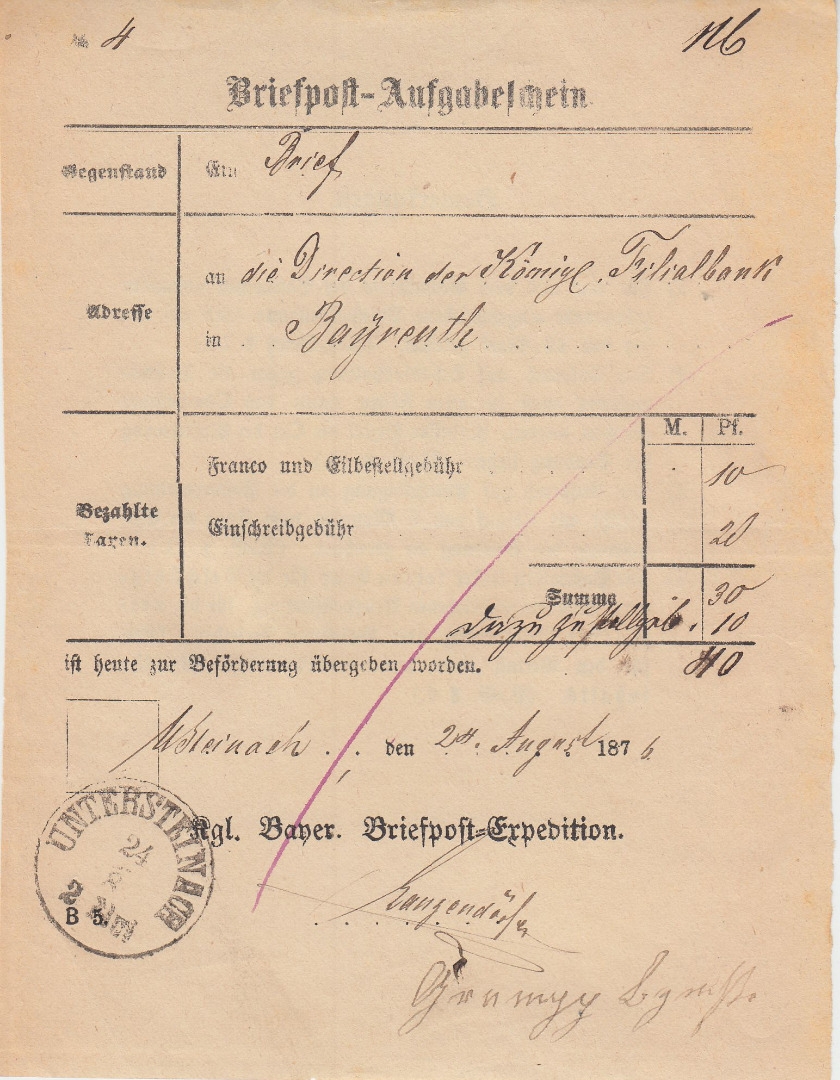 4 Nb
Briefpost-Aufgabeschein
Gegenstand Ein Brief
Adresse
an die Direction der Königl. Filialbank
in Bayreuth
M. Pf.
Bezahlte Taxen.
Franco und Eilbestellgebühr 10
Einschreibgebühr 20
Summa 30
dazu Zustellgeb. 10
40
ist heute zur Beförderung übergeben worden.
U/Steinach den 24. August 1876
UNTERSTEINACH
24
Kgl. Bayer. Briefpost-Expedition.
B 5.